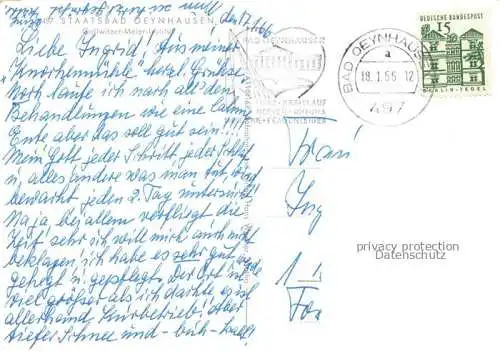 STAATSBAD OEYNHAUSEN
Gollwitzer-Meier-Institut
den 17.1.66
Liebe Ingrid! Aus meiner
"Knochenmühle" herzl. Grüße
Noch laufe ich nach all' den
Behandlungen wie eine lahme
Ente aber das soll gut sein!!!
Mein Gott jeder Schritt, jeder Schlaf
u. alles andere was man tut, wird
bewacht, jeden 2. Tag untersucht!
Na ja bei allem verfliegt die
Zeit sehr, ich will mich auch nicht
beklagen; ich habe es sehr gut, werde
gehegt u. gepflegt. Der Ort ist
viel größer als ich dachte, es ist
allerhand Kurbetrieb! Aber
tiefer Schnee und - buh - kalt!
BAD OEYNHAUSEN
HERZ KREISLAUF
NERVEN RHEUMA
FRAUENLEIDEN
BAD OEYNHAUSEN
a
18.1.66-12
4.97
DEUTSCHE BUNDESPOST
15
BERLIN-TEGEL
Frau
Ing
1
privacy protection
Datenschutz